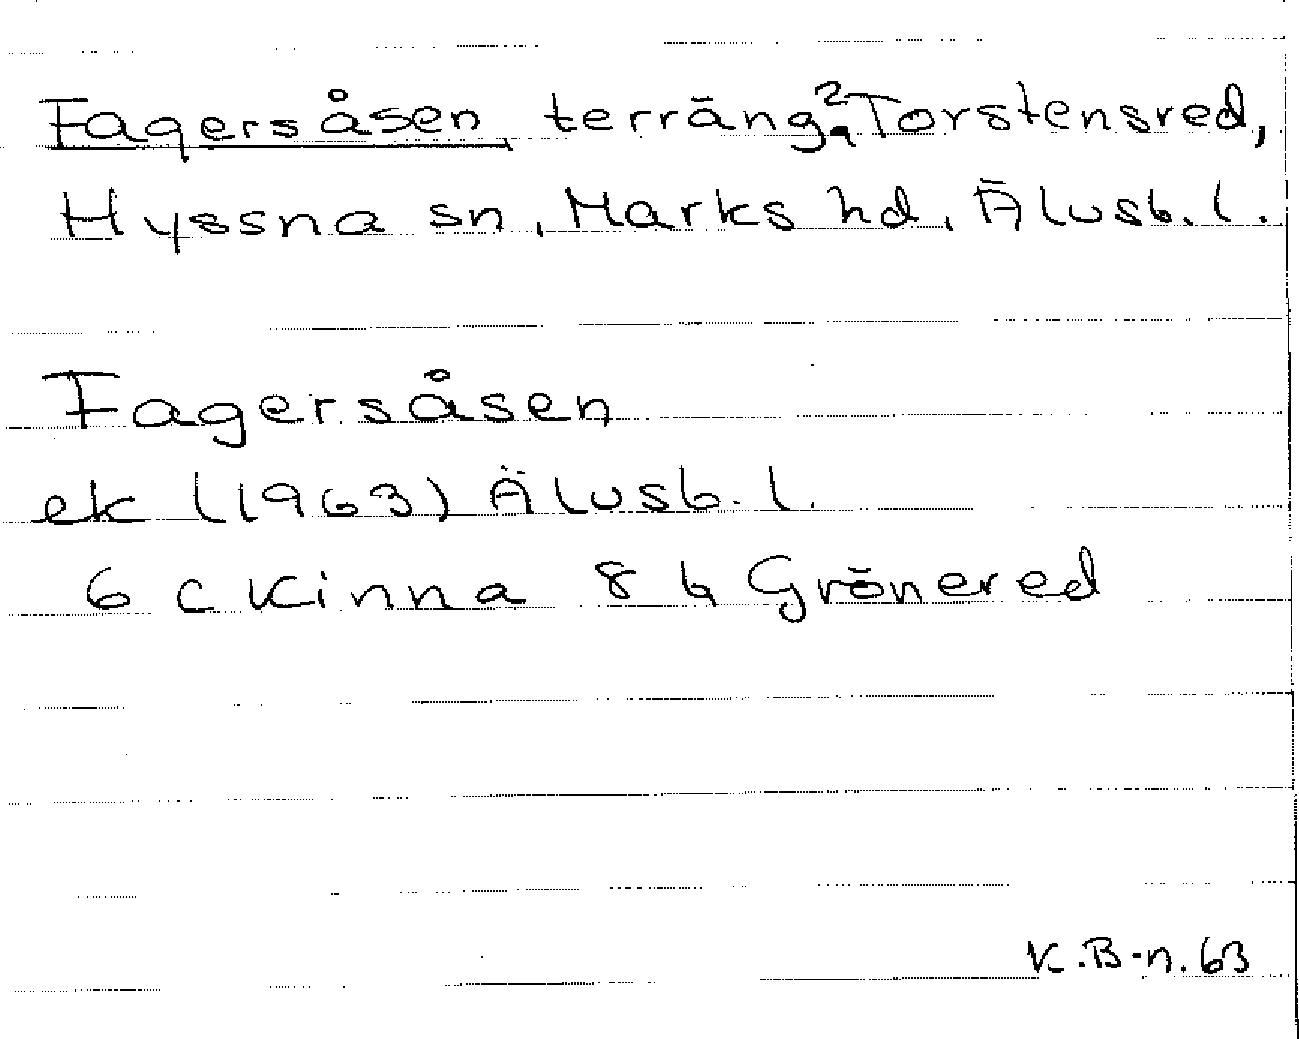 Fagersåsen, terräng?, Torstensred,
Hyssna sn, Marks hd, Älvsb. l.
Fagersåsen
ek (1963) Älvsb. l.
6 c Kinna 8 h Grönered
K.B-n. 63